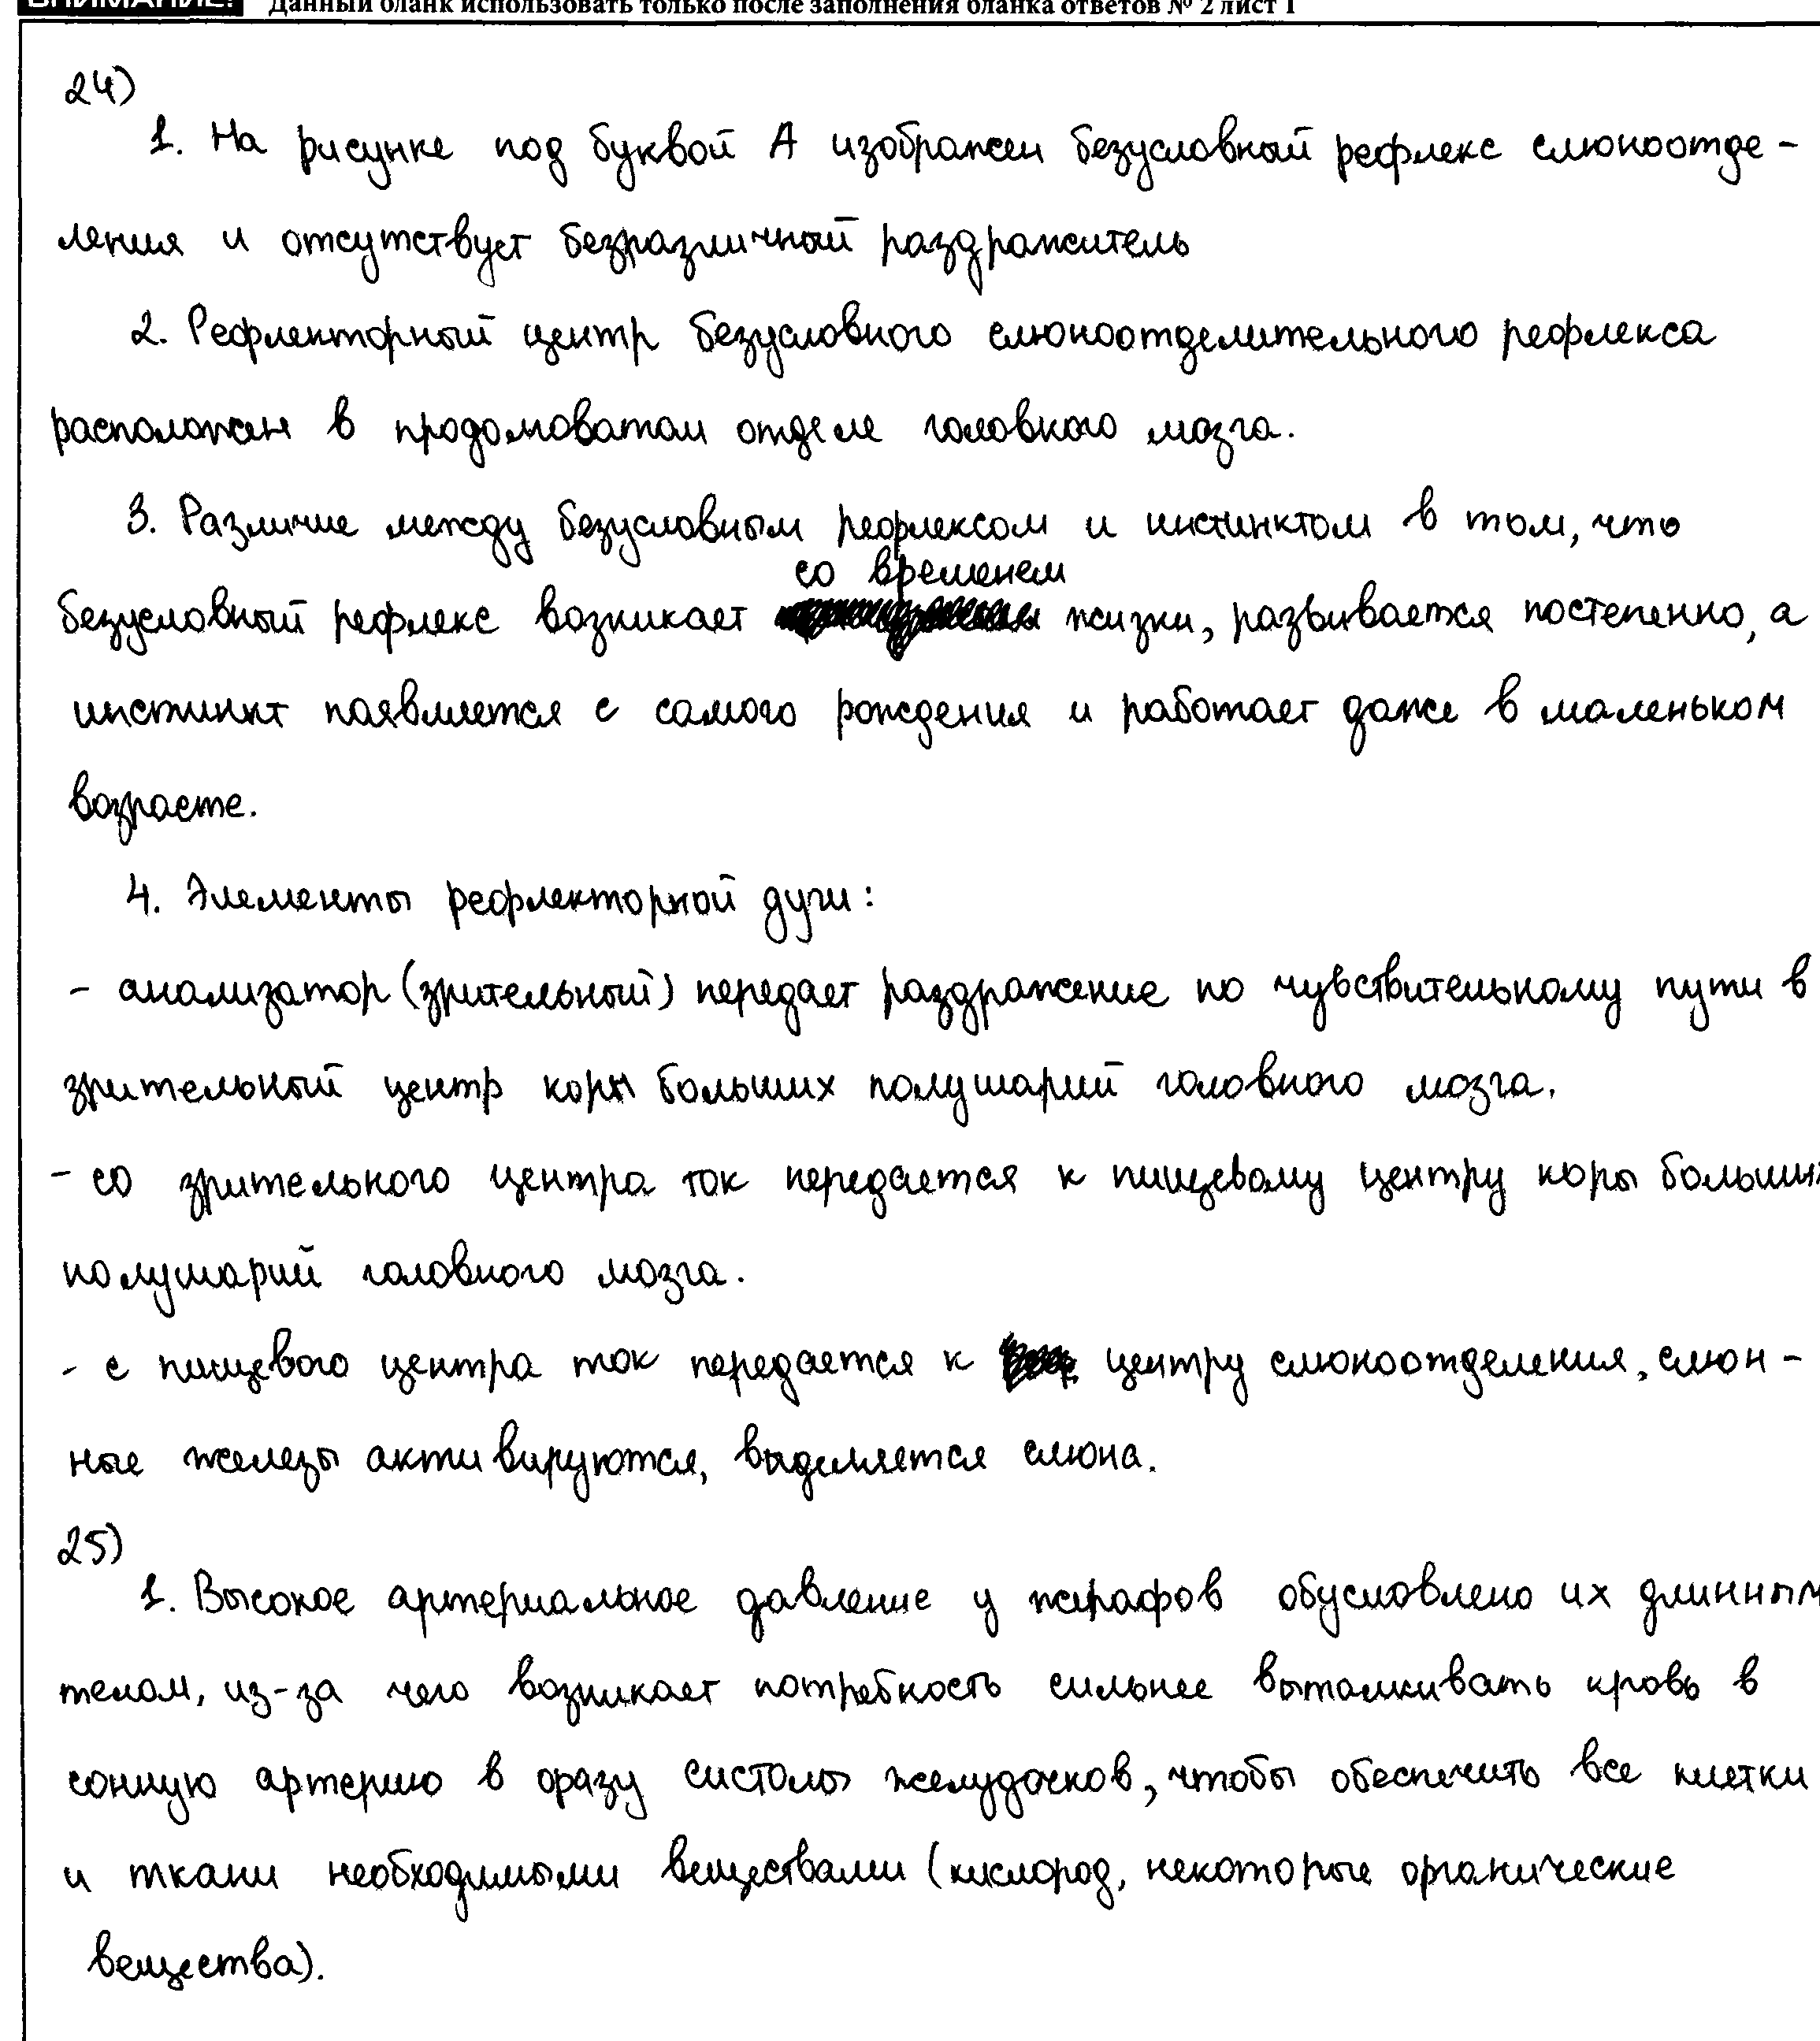 ВНИМАНИЕ! Данный бланк использовать только после заполнения бланка ответов № 2 лист 1
24)
1. На рисунке под буквой А изображен безусловный рефлекс слюноотде-
ления и отсутствует безразличный раздражитель
2. Рефлекторный центр безусловного слюноотделительного рефлекса
расположен в продолговатом отделе головного мозга.
3. Различие между безусловным рефлексом и инстинктом в том, что
со временем
безусловный рефлекс возникает жизни, развивается постепенно, а
инстинкт появляется с самого рождения и работает даже в маленьком
возрасте.
4. Элементы рефлекторной дуги:
- анализатор (зрительный) передает раздражение по чувствительному пути в
зрительный центр коры больших полушарий головного мозга.
- со зрительного центра ток передается к пищевому центру коры больших
полушарий головного мозга.
- с пищевого центра ток передается к центру слюноотделения, слюн-
ные железы активируются, выделяется слюна.
25)
1. Высокое артериальное давление у жирафов обусловлено их длинным
телом, из-за чего возникает потребность сильнее выталкивать кровь в
сонную артерию в фазу систолы желудочков, чтобы обеспечить все клетки
и ткани необходимыми веществами (кислород, некоторые органические
вещества).